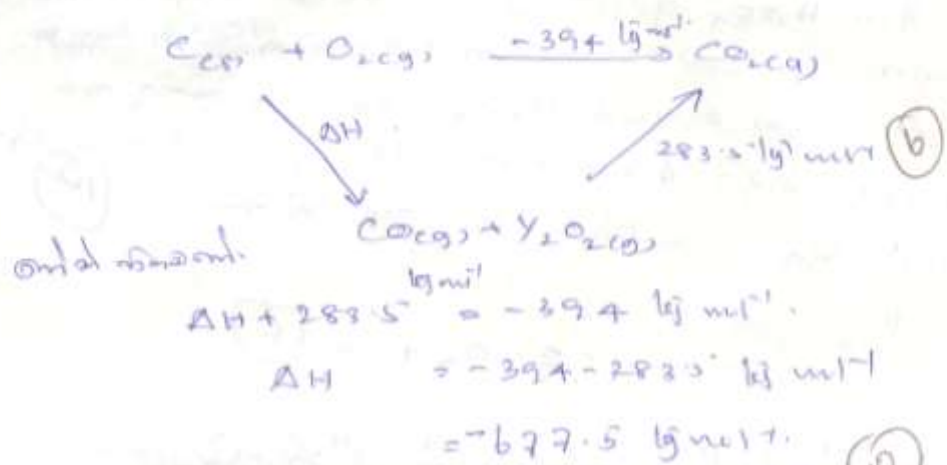 C(s) + O₂(g) -394 kJ mol⁻¹ CO₂(g)
ΔH
283.5 kJ mol⁻¹ b
CO(g) + ½O₂(g)
kJ mol⁻¹
ΔH + 283.5 = -394 kJ mol⁻¹.
ΔH = -394 - 283.5 kJ mol⁻¹
= -677.5 kJ mol⁻¹.